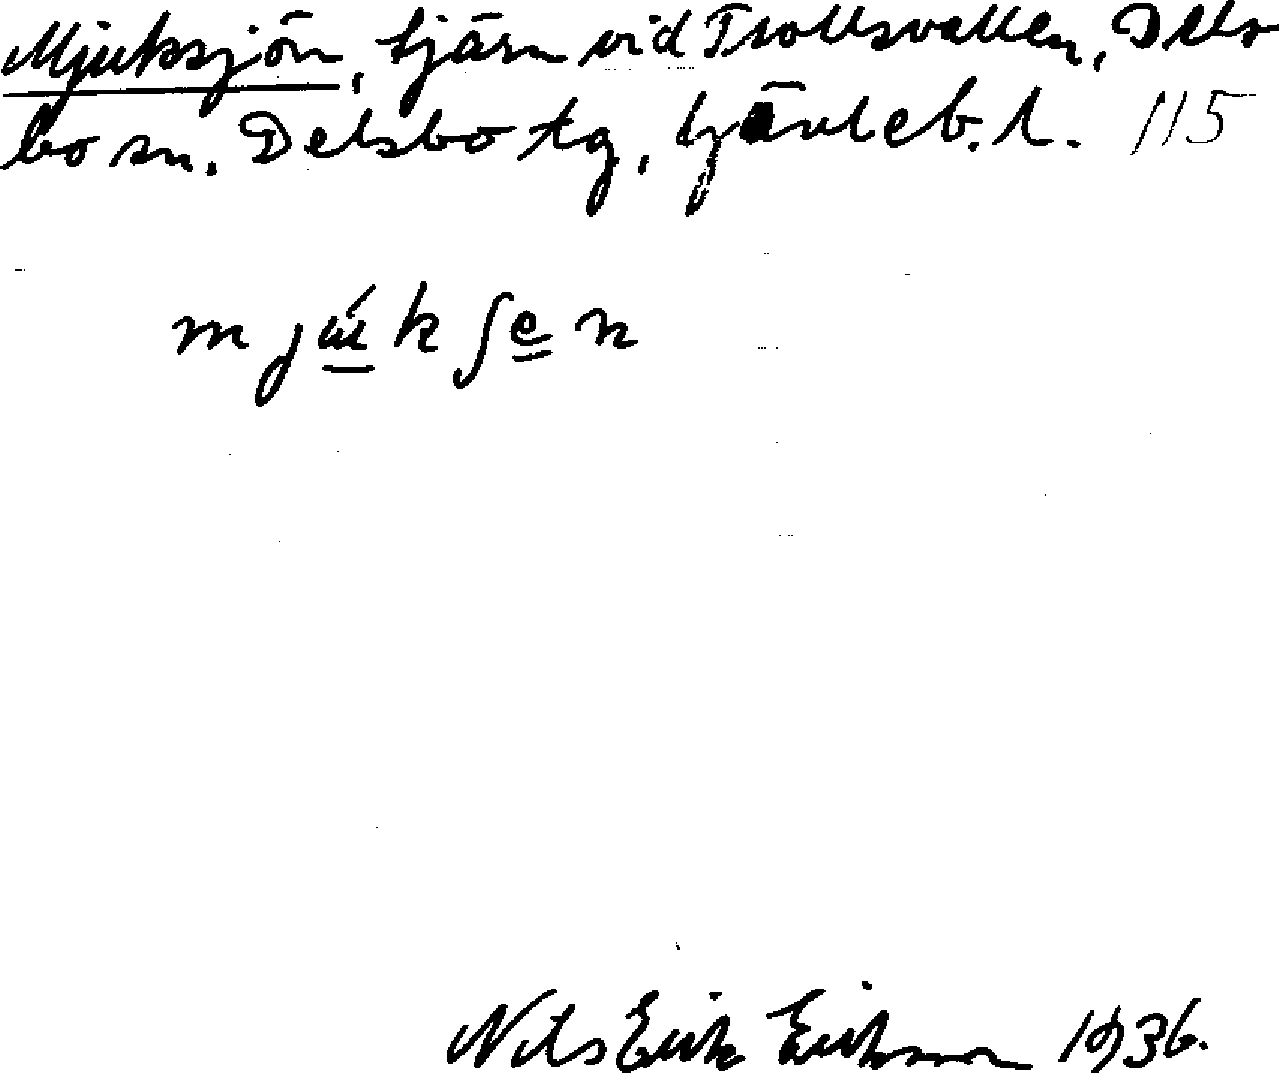 Mjuksjön, tjärn vid Trollsvallen, Dels
bo sn. Delsbo tg, Gävleb. l. 115
mjúkʃen
Nils Erik Eriksson 1936.